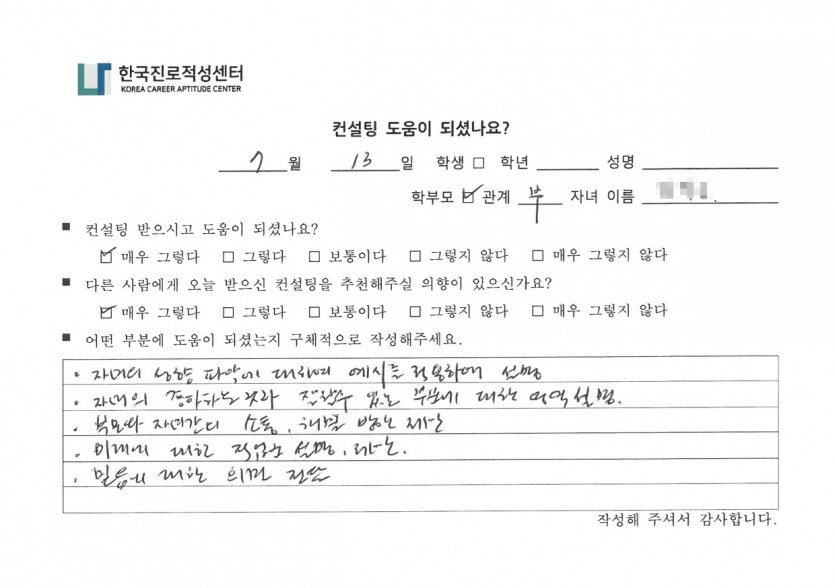 한국진로적성센터
KOREA CAREER APTITUDE CENTER
컨설팅 도움이 되셨나요?
7 월 13 일 학생 □ 학년 성명
학부모 ☑ 관계 부 자녀 이름
■ 컨설팅 받으시고 도움이 되셨나요?
☑ 매우 그렇다 □ 그렇다 □ 보통이다 □ 그렇지 않다 □ 매우 그렇지 않다
■ 다른 사람에게 오늘 받으신 컨설팅을 추천해주실 의향이 있으신가요?
☑ 매우 그렇다 □ 그렇다 □ 보통이다 □ 그렇지 않다 □ 매우 그렇지 않다
■ 어떤 부분에 도움이 되셨는지 구체적으로 작성해주세요.
· 자녀의 성향 파악에 대하여 예시를 적용하여 설명
· 자녀의 부분에 대한 영역 설명.
· 부모와 자녀간의 소통, 해결 방안 제안
· 미래에 대한 직업군 설명, 제안.
· 믿음에 대한 의견 전달
작성해 주셔서 감사합니다.